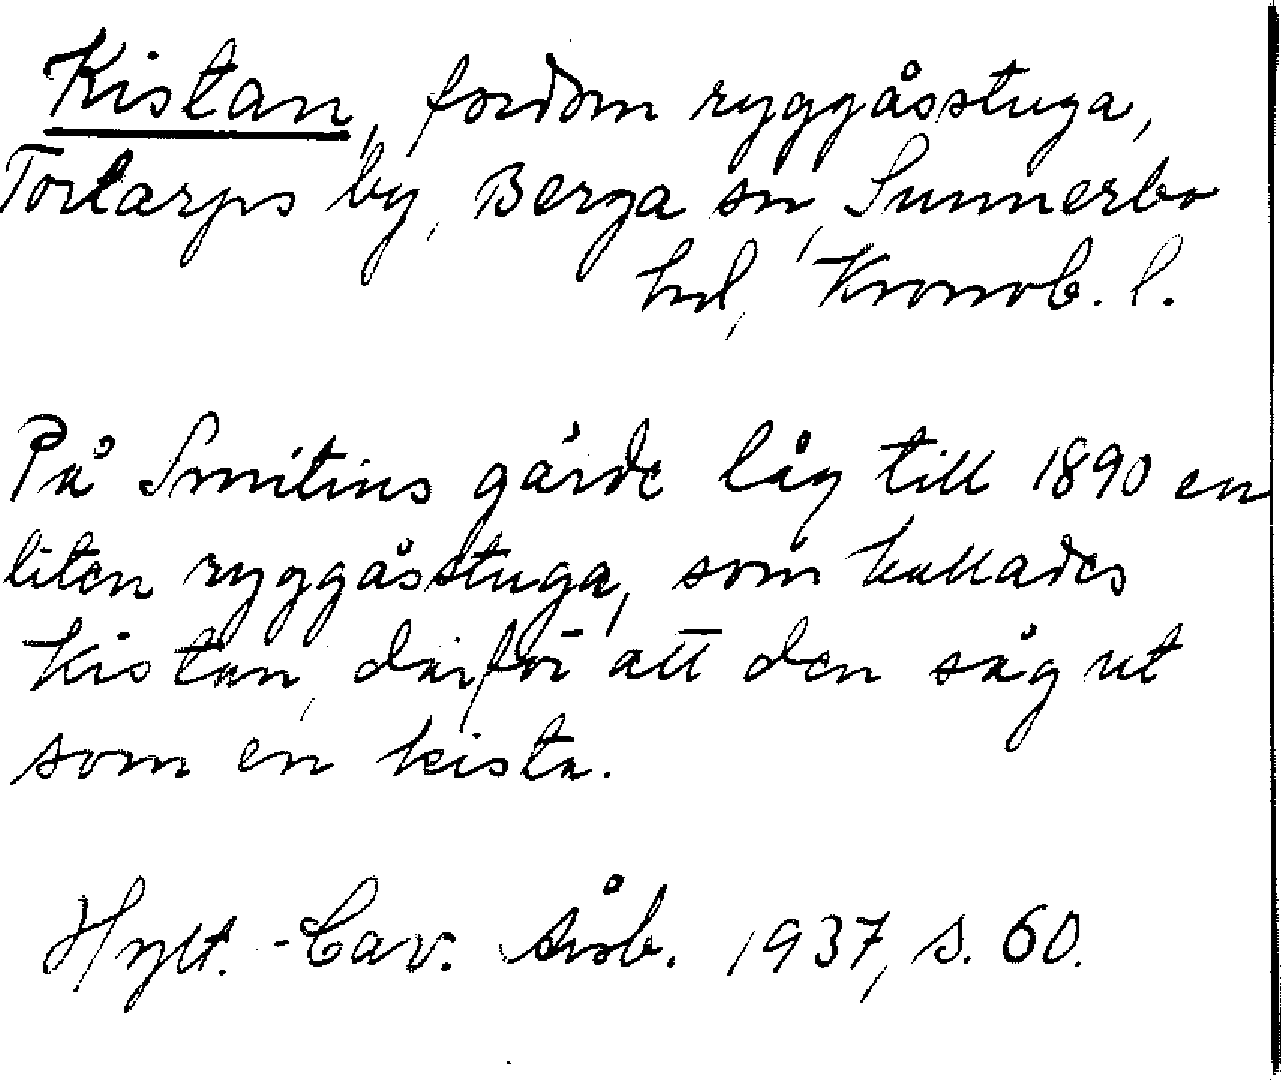 Kistan, fordom ryggåsstuga,
Tortarps by, Berga sn, Sunnerbo
hd, Kronob. l.
På Smitins gärde låg till 1890 en
liten ryggåsstuga, som kallades
kistan, därför att den såg ut
som en kista.
Hylt.-Cav. Årsb. 1937, s. 60.